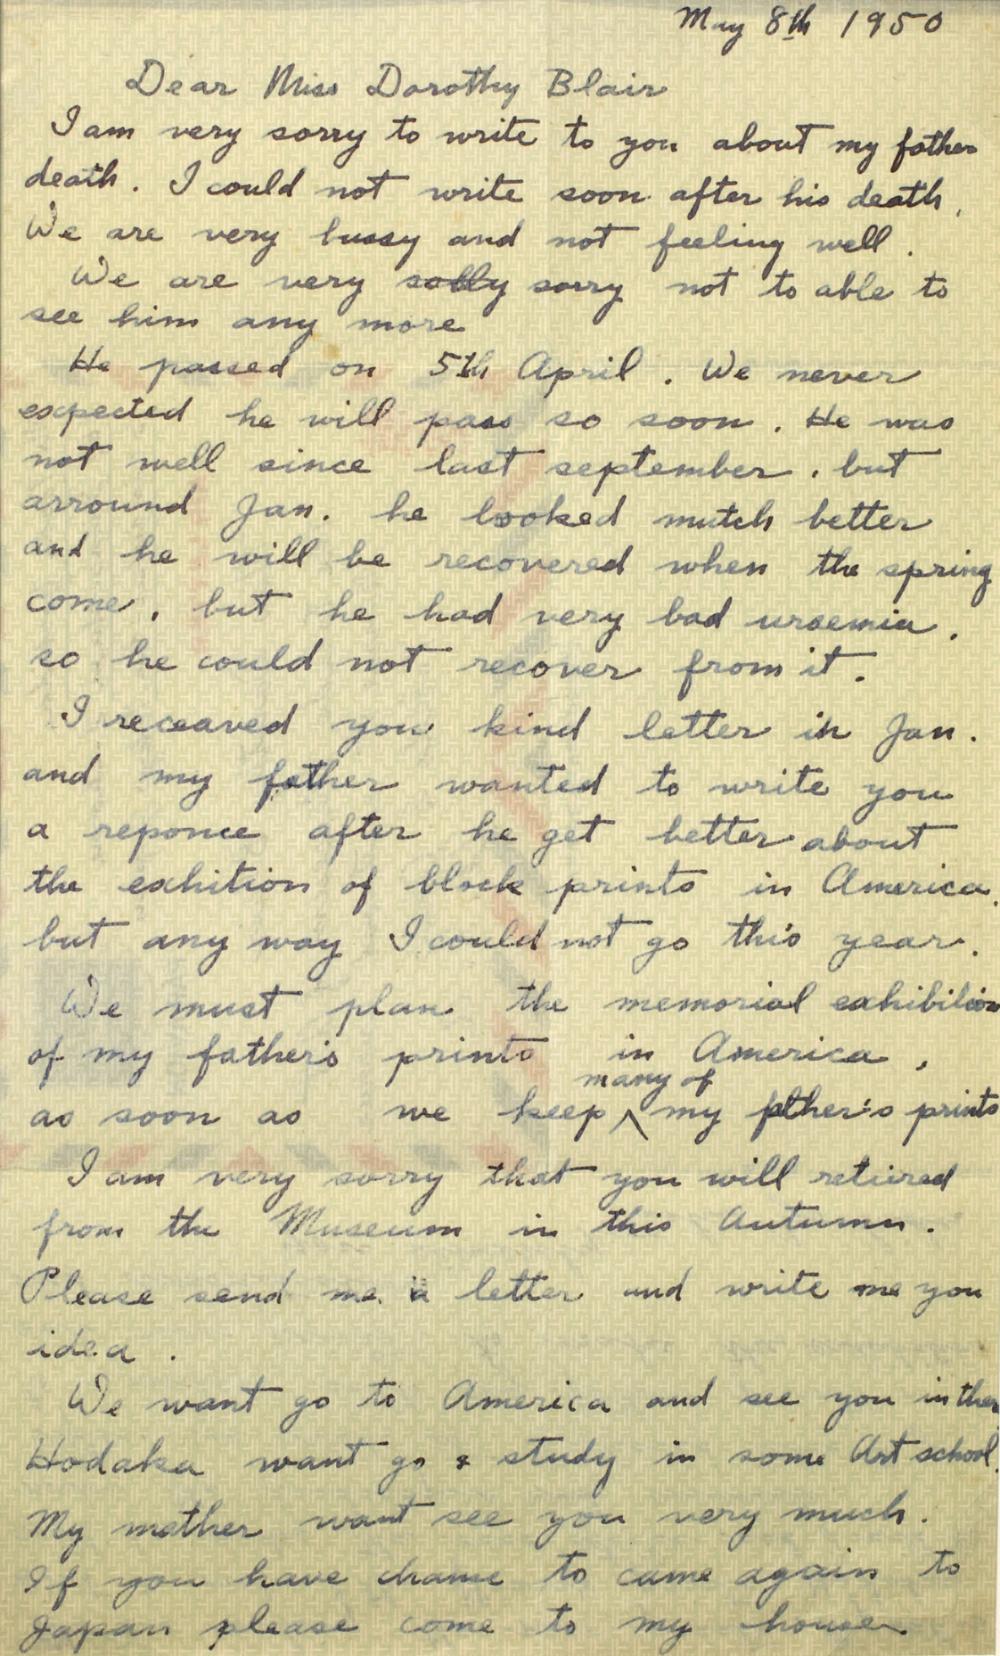 May 8th 1950
Dear Miss Dorothy Blair
I am very sorry to write to you about my father
death. I could not write soon after his death.
We are very bussy and not feeling well.
We are very solly sorry not to able to
see him any more
He passed on 5th April. We never
expected he will pass so soon. He was
not well since last september. but
arround Jan. he looked mutch better
and he will be recovered when the spring
come, but he had very bad uraemia.
so he could not recover from it.
I receaved you kind letter in Jan.
and my father wanted to write you
a reponce after he get better about
the exhition of block prints in America.
but any way I could not go this year.
We must plan the memorial exhibition
of my father's prints in America,
many of
as soon as we keep my father's prints
I am very sorry that you will retiired
from the Museum in this Autumn.
Please send me a letter and write me you
idea.
We want go to America and see you in ther
Hodaka want go & study in some Art school.
My mother want see you very much.
If you have chance to came again to
Japan please come to my house